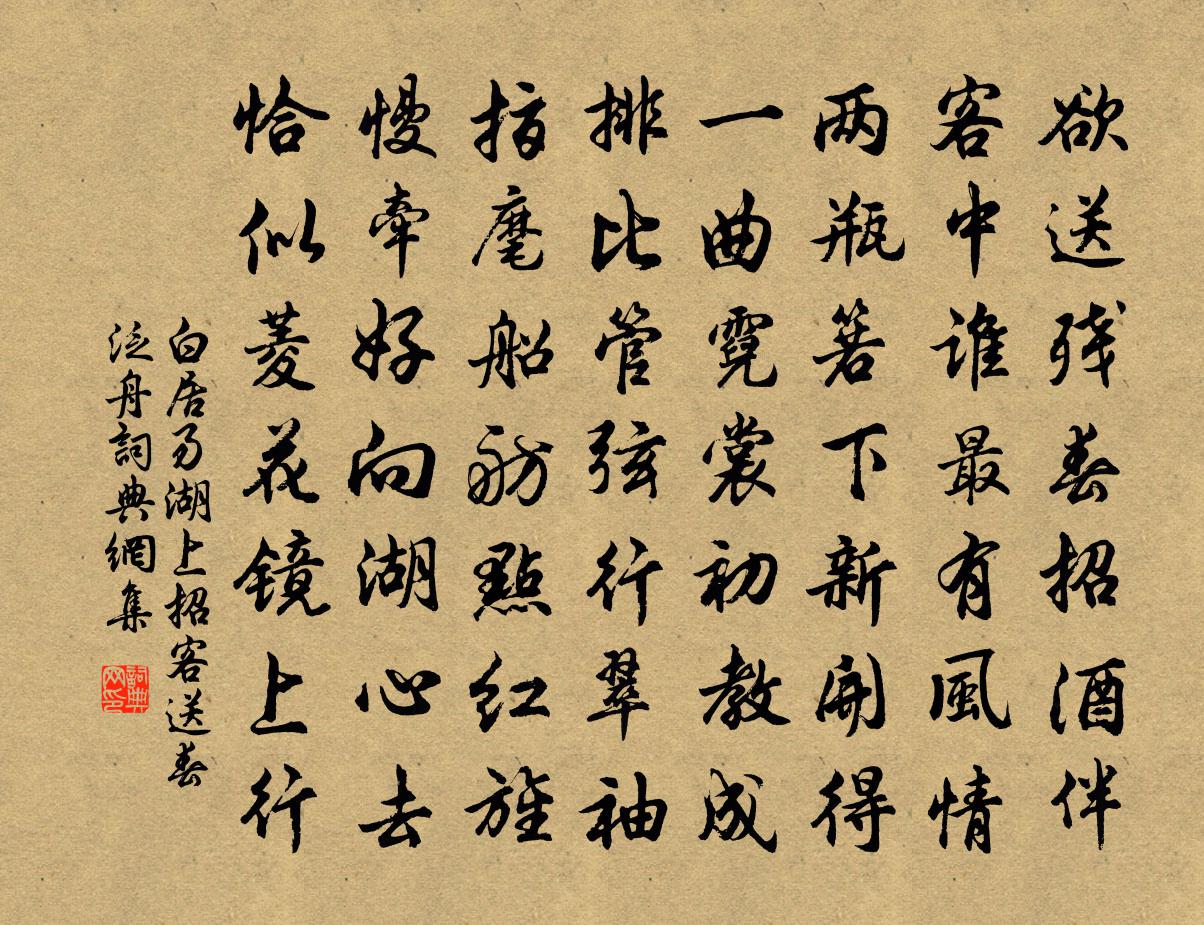 欲送残春招酒伴
客中谁最有風情
两瓶箬下新開得
一曲霓裳初教成
排比管弦行翠袖
指麾船舫點红旌
慢牵好向湖心去
恰似菱花镜上行
白居易湖上招客送春
泛舟詞典網集
詞典網印